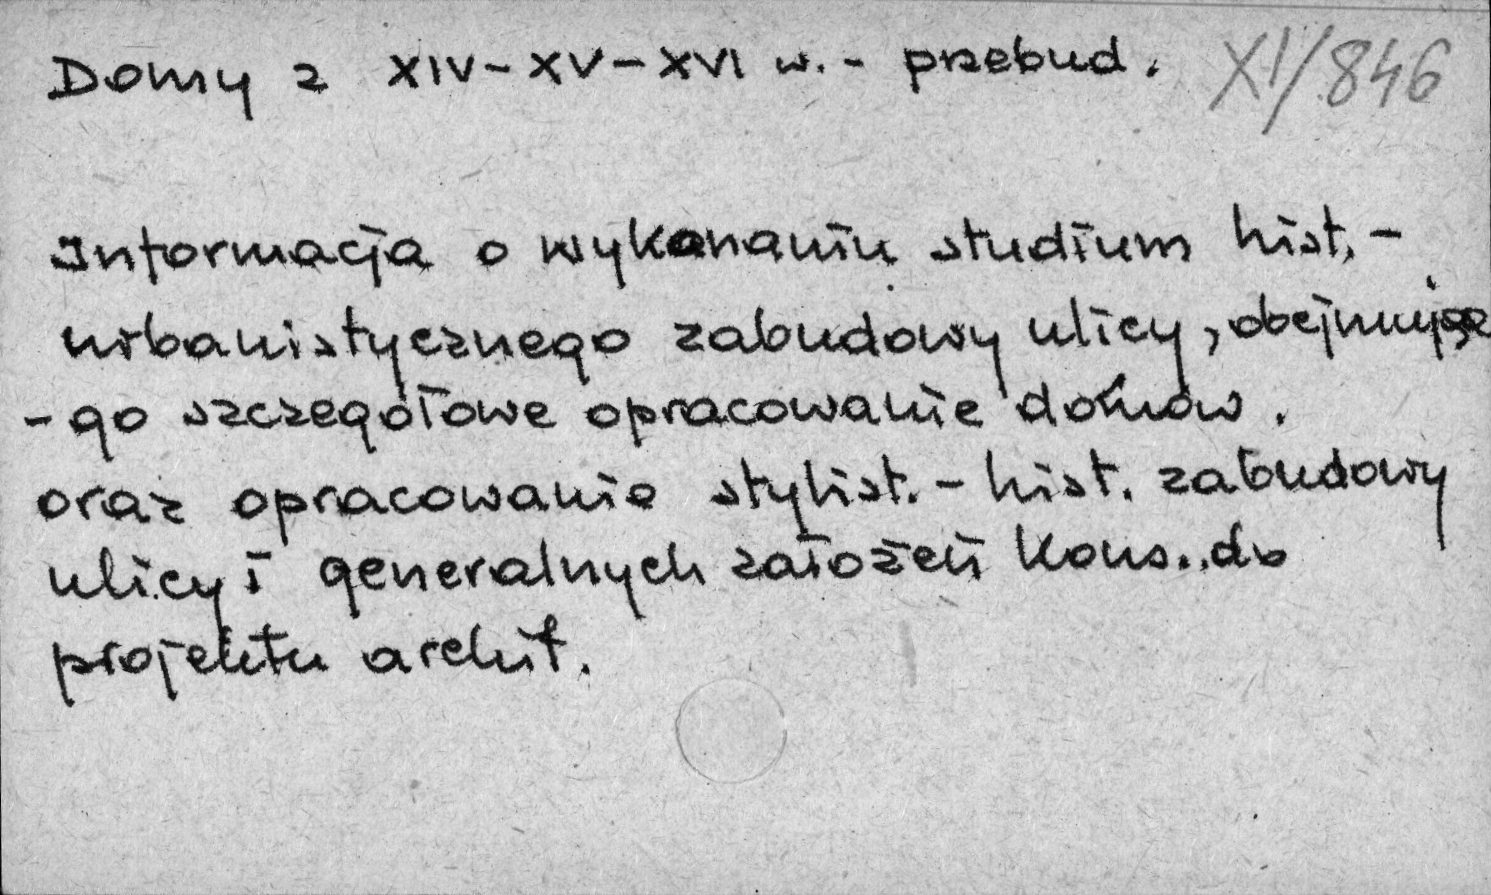 Domy z XIV-XV-XVI w. - przebud. XI/846
Informacja o wykonaniu studium hist. -
urbanistycznego zabudowy ulicy, obejmujące
- go szczegółowe opracowanie domów.
oraz opracowanie stylist. - hist. zabudowy
ulicy i generalnych założeń kons. do
projektu archit.